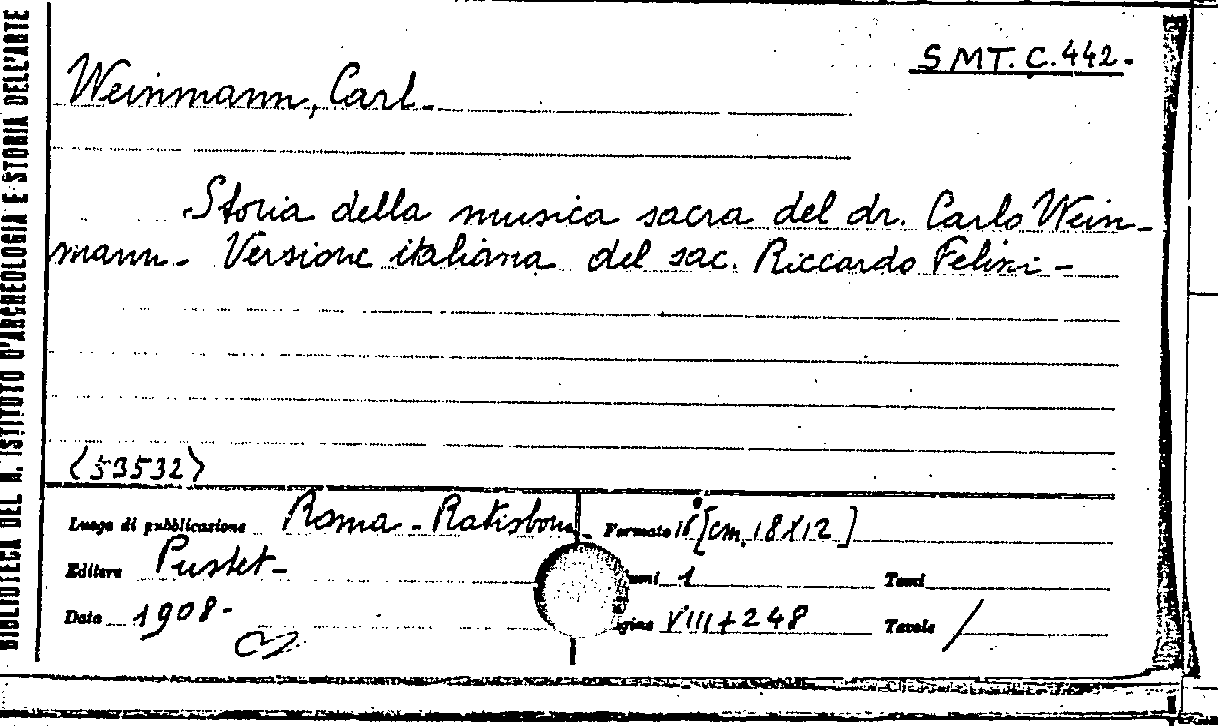 BIBLIOTECA DEL R. ISTITUTO D'ARCHEOLOGIA E STORIA DELL'ARTE
SMT. C. 442.
Weinmann, Carl.
Storia della musica sacra del dr. Carlo Wein-
mann. Versione italiana del sac. Riccardo Felini -
<53532>
Luogo di pubblicazione Roma - Ratisbona Formato 16° [cm. 18X12]
Editore Pustet - umi 1 Tomi
Data 1908 - gine VIII+248 Tavole /